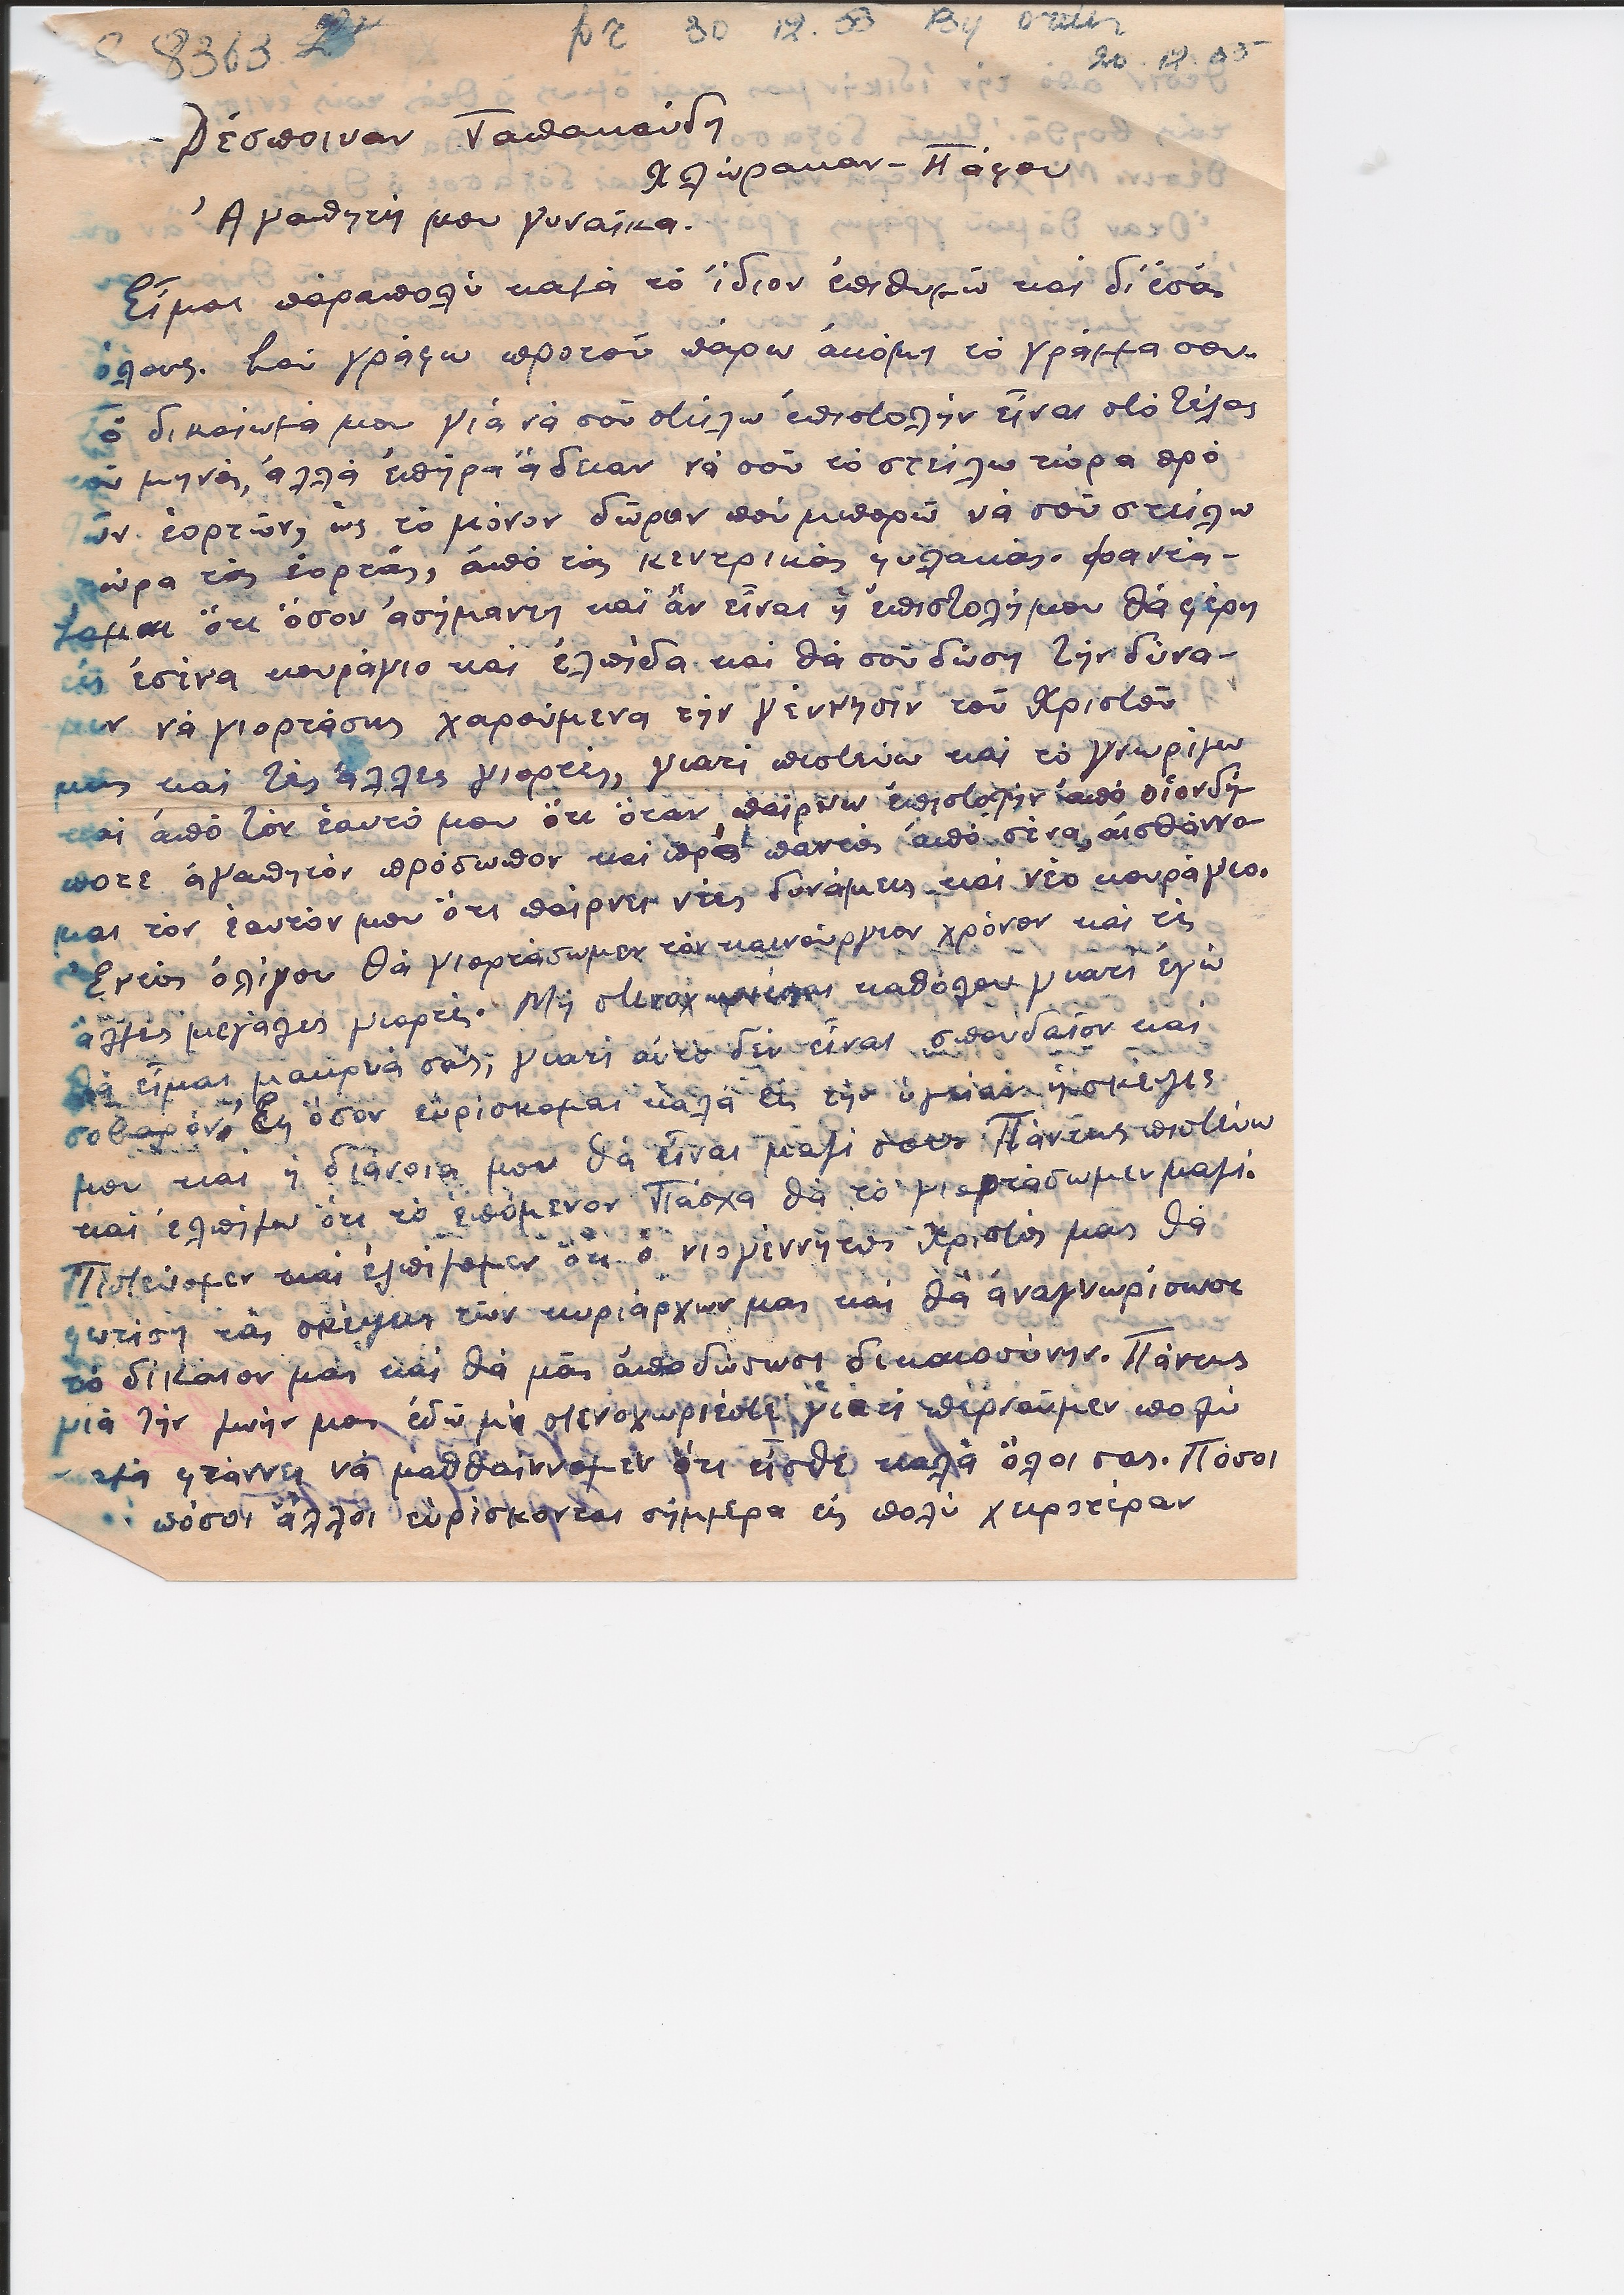 8363
30 12. 55 By order
20. 12. 55
Δέσποιναν Ταπακούδη
Χλώρακαν - Πάφου
Ἀγαπητή μου γυναίκα.
Εἶμαι πάραπολύ καλά τό ἴδιον ἐπιθυμῶ καί δι' ἐσᾶς
ὅλους. Σοῦ γράφω προτοῦ πάρω ἀκόμη τό γράμμα σου.
Τό δικαίωμά μου γιά νά σοῦ στείλω ἐπιστολήν εἶναι στό τέλος
τοῦ μηνός, ἀλλά ἐπῆρα ἄδειαν νά σοῦ τό στείλω τώρα πρό
τῶν ἑορτῶν, ὡς τό μόνον δῶρον πού μπορῶ νά σοῦ στείλω
τώρα τάς ἑορτάς, ἀπό τάς κεντρικάς φυλακάς. Φαντά-
ζομαι ὅτι ὅσον ἀσήμαντη καί ἄν εἶναι ἡ ἐπιστολή μου θά φέρη
εἰς ἐσένα κουράγιο καί ἐλπίδα καί θά σοῦ δώση τήν δύνα-
μιν νά γιορτάσης χαρούμενα τήν γέννησιν τοῦ Χριστοῦ
μας καί τές ἄλλες γιορτές, γιατί πιστεύω καί τό γνωρίζω
καί ἀπό τόν ἑαυτό μου ὅτι ὅταν παίρνω ἐπιστολήν ἀπό οἱονδή-
ποτε ἀγαπητόν πρόσωπον καί πρό παντός ἀπό σένα, αἰσθάννο-
μαι τόν ἑαυτόν μου ὅτι παίρνει νέες δυνάμεις καί νέο κουράγιο.
Ἐντός ὀλίγου θά γιορτάσωμεν τόν καινούργιον χρόνον καί τές
ἄλλες μεγάλες γιορτές. Μή στενοχωριέσαι καθόλου γιατί ἐγώ
θά εἶμαι μακρυά σας, γιατί αὐτό δέν εἶναι σπουδαῖον καί
σοβαρόν. Ἐφ' ὅσον εὑρίσκομαι καλά εἰς τήν ὑγείαν ἡ σκέψις
μου καί ἡ διάνοια μου θά εἶναι μαζί σου. Πάντως πιστεύω
καί ἐλπίζω ὅτι τό ἑπόμενον Πάσχα θά τό γιορτάσωμεν μαζί.
Πιστεύομεν καί ἐλπίζομεν ὅτι ὁ νιογέννητος Χριστός μας θά
φωτίση τάς σκέψεις τῶν κυριάρχων μας καί θά ἀναγνωρίσωσι
τό δίκαιον μας καί θά μᾶς ἀποδώσωσι δικαιοσύνην. Πάντως
γιά τήν ζωήν μας ἐδῶ μή στενοχωριέστε γιατί περνοῦμεν πολύ
καλά φτάννει νά μαθθαίννομεν ὅτι εἶσθε καλά ὅλοι σας. Πόσοι
πόσοι ἄλλοι εὑρίσκονται σήμμερα εἰς πολύ χειροτέραν